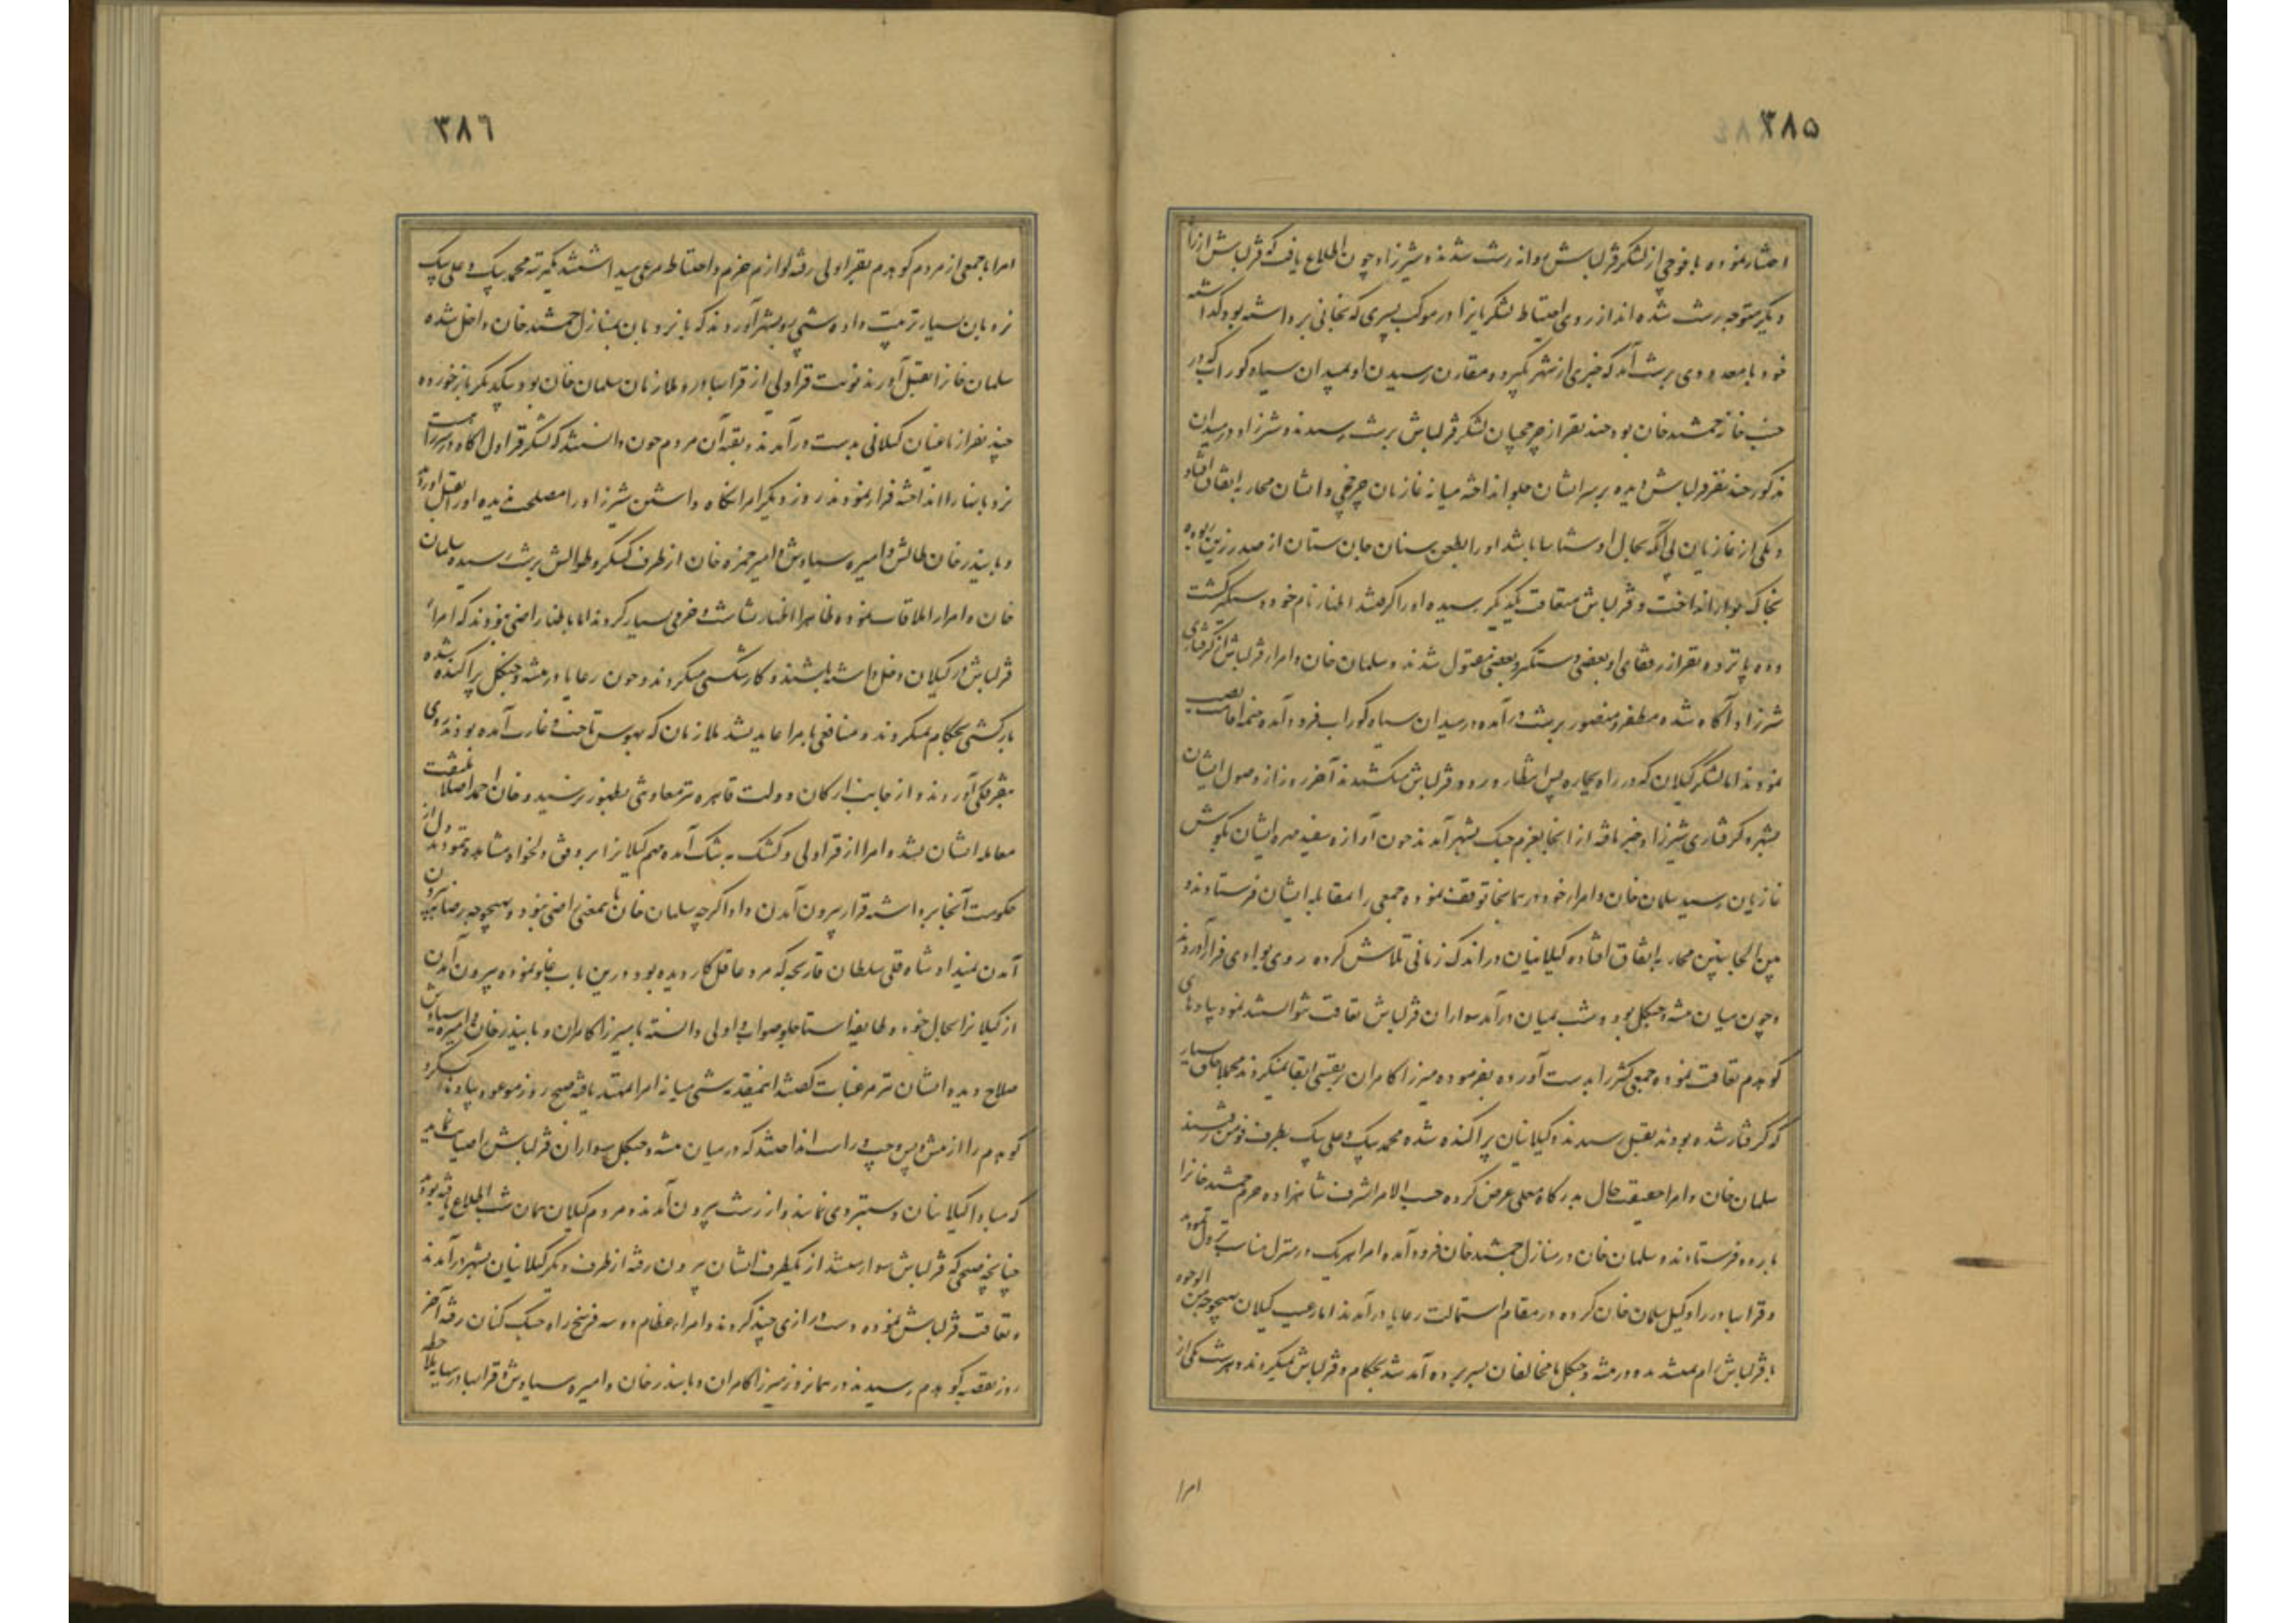 ۳۸۵
اختیار نموده با فوجی از لشکر قزلباش روانه رشت شدند و شیرزاد چون اطلاع یافت که قزلباش از راه
دیگر متوجه رشت شده‌اند از روی احتیاط لشکریانرا در موکب پسری که بخانی برداشته بود گذاشته
خود با معدودی برشت آمد که خبری از شهر گیرد و مقارن رسیدن او بمیدان سیاه کوراب که در
جنب خانه جمشیدخان بود چند نفر از چرخچیان لشکر قزلباش برشت رسیدند و شیرزاد در میدان
مذکور چند نفر قزلباش دیده بر سر ایشان جلو انداخته میانه غازیان چرخچی و ایشان محاربه اتفاق افتاد
و یکی از غازیان بی آنکه بحال او شناسا باشد او را بطعن سنان جان ستان از صدر زین ربوده
بخاک هوان انداخت و قزلباش متعاقب یکدیگر رسیده او را گرفتند اظهار نام خود دستگیر گشت
و ده پانزده نفر از رفقای او بعضی دستگیر و بعضی مقتول شدند و سلمان خان و امراء قزلباش از گرفتاری
شیرزاد آگاه شده مظفر و منصور برشت درآمده در میدان سیاه کوراب فرود آمده خیمه اقامت نصب
نمودند اما لشکر گیلان که در راه بیچاره پس انتظار ورود قزلباش میکشیدند آخر روز از وصول ایشان
بشهر و گرفتاری شیرزاد خبر یافته از آنجا بعزم جنگ بشهر آمدند چون آوازه سفید مهره ایشان بگوش
غازیان رسید سلمان خان و امراء خود در همانجا توقف نموده جمعی را بمقابله ایشان فرستادند و
بین الجانبین محاربه اتفاق افتاده گیلانیان در اندک زمانی تلاش کرده روی بوادی فرار آوردند
و چون میان بیشه و جنگل بود و شب بمیان درآمد سواران قزلباش تعاقب نتوانستند نمود پیاده‌های
کوهدم تعاقب نموده جمعی کثیر را بدست آورده بفرموده میرزا کامران بر نفسی ابقا نمیکردند مجملا خلق بسیار
که گرفتار شده بودند بقتل رسیدند و گیلانیان پراکنده شده محمد بیک و علی بیک بطرف فومن رفتند
سلمان خان و امرا حقیقت حال بدرگاه معلی عرض کرده حسب الامر اشرف شاهزاده حرم جمشیدخانرا
با برده فرستادند و سلمان خان در منازل جمشیدخان فرود آمده امرا هر یک در منزل مناسب نزول نمودند
و قرابهادر را وکیل سلمان خان کرده در مقام استمالت رعایا درآمدند اما رعیت گیلان بهیچوجه من الوجوه
با قزلباش رام نمیشدند و در بیشه و جنگل با مخالفان بسر برده آمد شد بحکام و قزلباش نمیکردند و هر شب یکی از
امرا
۳۸۶
امرا با جمعی از مردم کوهدم بقراولی رفته لوازم حزم و احتیاط مرعی میداشتند یکمرتبه محمد بیک و علی بیک
نردبان بسیار ترتیب داده شبی بر سر شهر آوردند که با نردبان بمنازل جمشیدخان داخل شده
سلمان خانرا بقتل آورند نوبت قراولی از قرابهادر و ملازمان سلمان خان بود بیکدیگر باز خورده
چند نفر از یاغیان گیلانی بدست درآمدند بقیه آن مردم چون دانستند که لشکر قراول آگاه و در سر راه است
نردبانها را انداخته فرار نمودند روز دیگر امرا نگاه داشتن شیرزاد را مصلحت ندیده او را بقتل آوردند
و بایندرخان طالش و امیره سیاوش و امیر حمزه خان از طرف گسکر و طوالش برشت رسیده سلمان
خان و امرا را ملاقات نموده ظاهرا اظهار بشاشت و خرمی بسیار کردند اما باطنا راضی نبودند که امراء
قزلباش در گیلان دخل داشته باشند و کارشکنی میکردند و چون رعایا در بیشه و جنگل پراکنده شده
بارکشی بحکام نمیکردند و منافعی بامرا عاید نشد ملازمان که بهوس تاخت و غارت آمده بودند روی
بتفرقگی آوردند و از جانب ارکان دولت قاهره نیز معاونتی بظهور نرسید و خان احمد اصلا ملتفت
معامله ایشان نشد و امرا از قراولی و کشک به تنگ آمده مهم گیلانرا بر وفق دلخواه مشاهده ننمودند دل از
حکومت آنجا برداشته قرار بیرون آمدن داد اگرچه سلمان خان باین معنی راضی نبود و بهیچوجه رضا به بیرون
آمدن نمیداد شاه قلی سلطان قارنجه که مرد عاقل کار دیده بود درین باب غلو نموده بیرون آمدن
از گیلانرا بحال خود و طایفه استاجلو صواب و اولی دانسته با میرزا کامران و بایندرخان و امیره سیاوش
صلاح دیده ایشان نیز مرغبات گفتند القصه شبی میانه امرا تمهید یافته صبح روز موعود پیاده‌های گسکر و
کوهدم را از پیش و پس و چپ و راست انداختند که در میان بیشه و جنگل سواران قزلباش را صیانت نمایند
که مبادا گیلانیان دستبردی نمایند و از رشت بیرون آمدند و مردم گیلان همان شب اطلاع یافته بودند
چنانچه صبحی که قزلباش سوار میشد از یکطرف ایشان بیرون رفته از طرف دیگر گیلانیان بشهر درآمدند
و تعاقب قزلباش نموده دست درازی چند کردند و امراء عظام دو سه فرسخ راه جنگ کنان رفته آخر
روز بقصبه کوهدم رسیدند و در همان روز میرزا کامران و بایندرخان و امیره سیاوش و قرابهادر